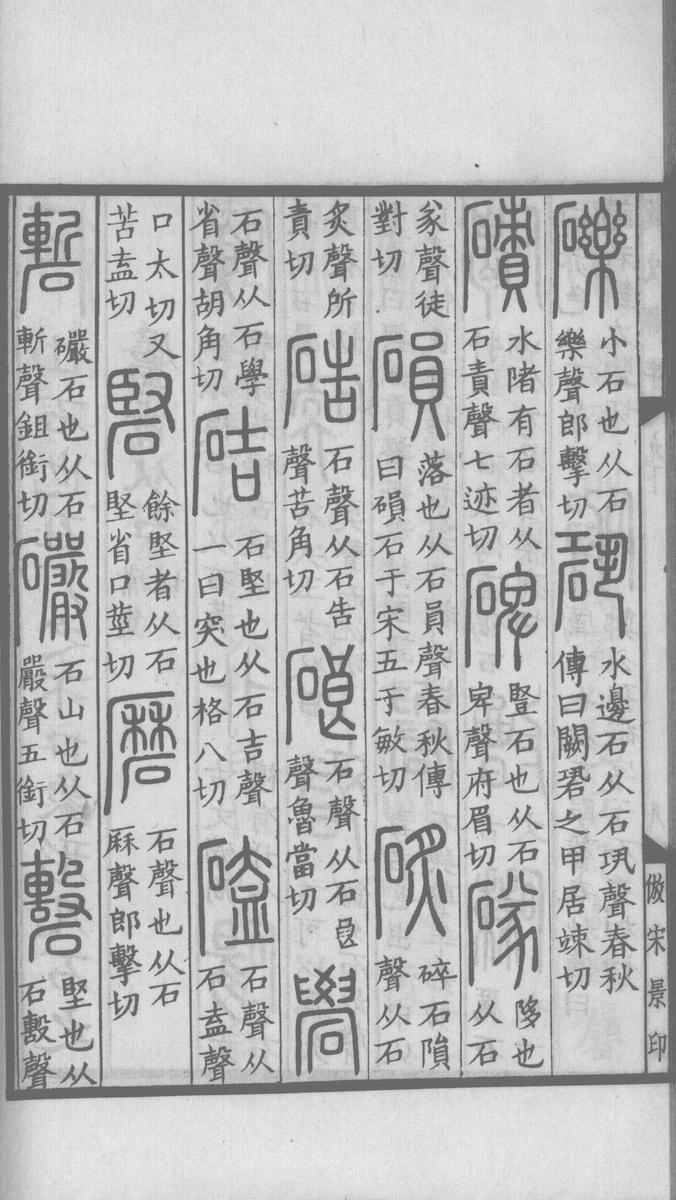 礫
小石也从石
樂聲郎擊切
䂬
水邊石从石巩聲春秋
傳曰闕䂬之甲居竦切
磧
水陼有石者从
石責聲七迹切
碑
豎石也从石
卑聲府眉切
䃍
陊也
从石
㒸聲徒
對切
磒
落也从石員聲春秋傳
曰磒石于宋五于敏切
碎石隕
聲从石
炙聲所
責切
硞
石聲从石告
聲苦角切
硠
石聲从石良
聲魯當切
礐
石聲从石學
省聲胡角切
硈
石堅也从石吉聲
一曰突也格八切
磕
石聲从
石盍聲
口太切又
苦盍切
硻
餘堅者从石
堅省口莖切
磿
石聲也从石
厤聲郎擊切
磛
礹石也从石
斬聲鉏銜切
礹
石山也从石
嚴聲五銜切
礊
堅也从
石毄聲
倣宋景印